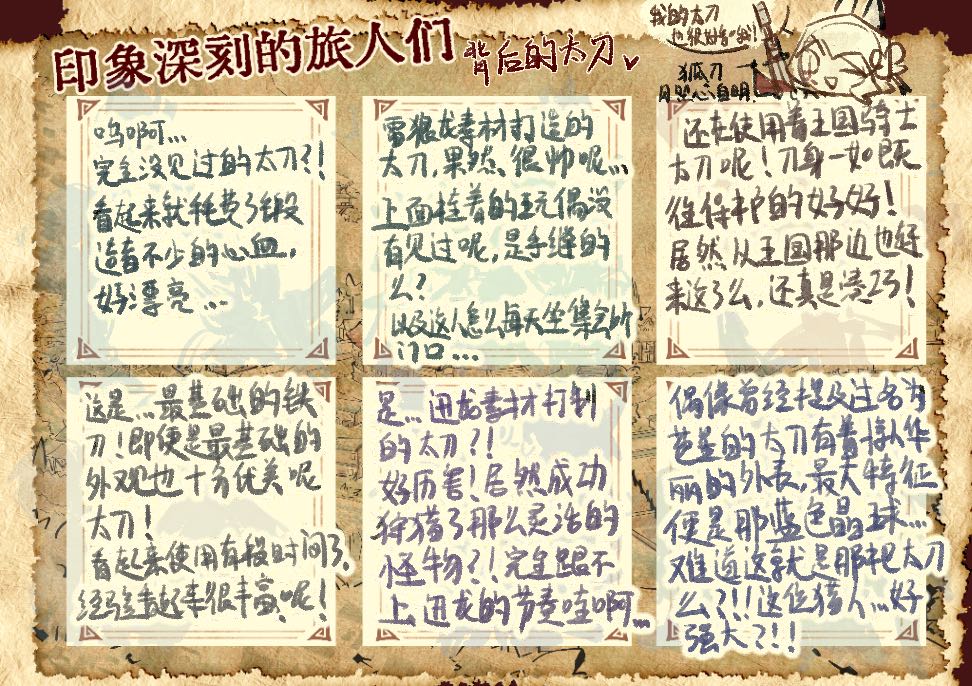 印象深刻的旅人们
背后的太刀
我的太刀
也很好看哦!
狐刀
呜啊...
完全没见过的太刀?!
看起来就耗费了锻
造者不少的心血,
好漂亮...
雷狼龙素材打造的
太刀,果然、很帅呢...
上面挂着的玩偶没
有见过呢,是手缝的
么?
以及这人怎么每天坐集会所
门口...
还在使用着王国骑士
太刀呢!刀身一如既
往保护的好好!
居然从王国那边也赶
来这了么,还真是凑巧!
这是...最基础的铁
刀!即便是最基础的
外观也十分优美呢
太刀!
看起来使用有段时间了,
经验看起来很丰富呢!
是、迅龙素材打制
的太刀?!
好厉害!居然成功
狩猎了那么灵活的
怪物?!完全跟不
上、迅龙的节奏哇啊...
偶像曾经提及过名为
芒星的太刀有着惊人华
丽的外表,最大特征
便是那蓝色晶球...
难道这就是那把太刀
么?!!这位猎人...好
强大?!!